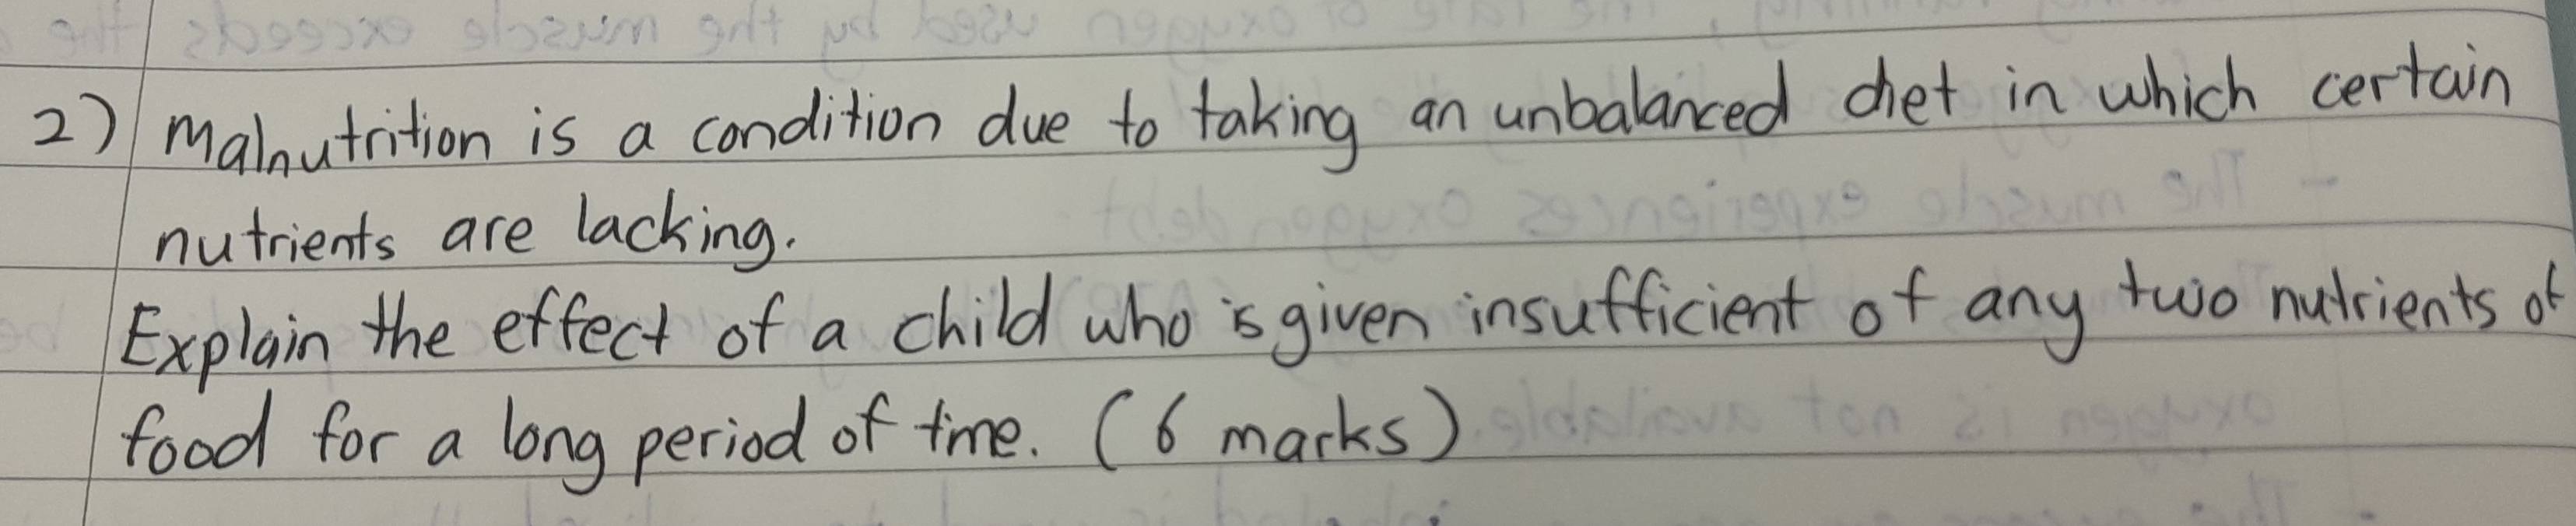 2) Malnutrition is a condition due to taking an unbalanced diet in which certain
nutrients are lacking.
Explain the effect of a child who is given insufficient of any two nutrients of
food for a long period of time. (6 marks)